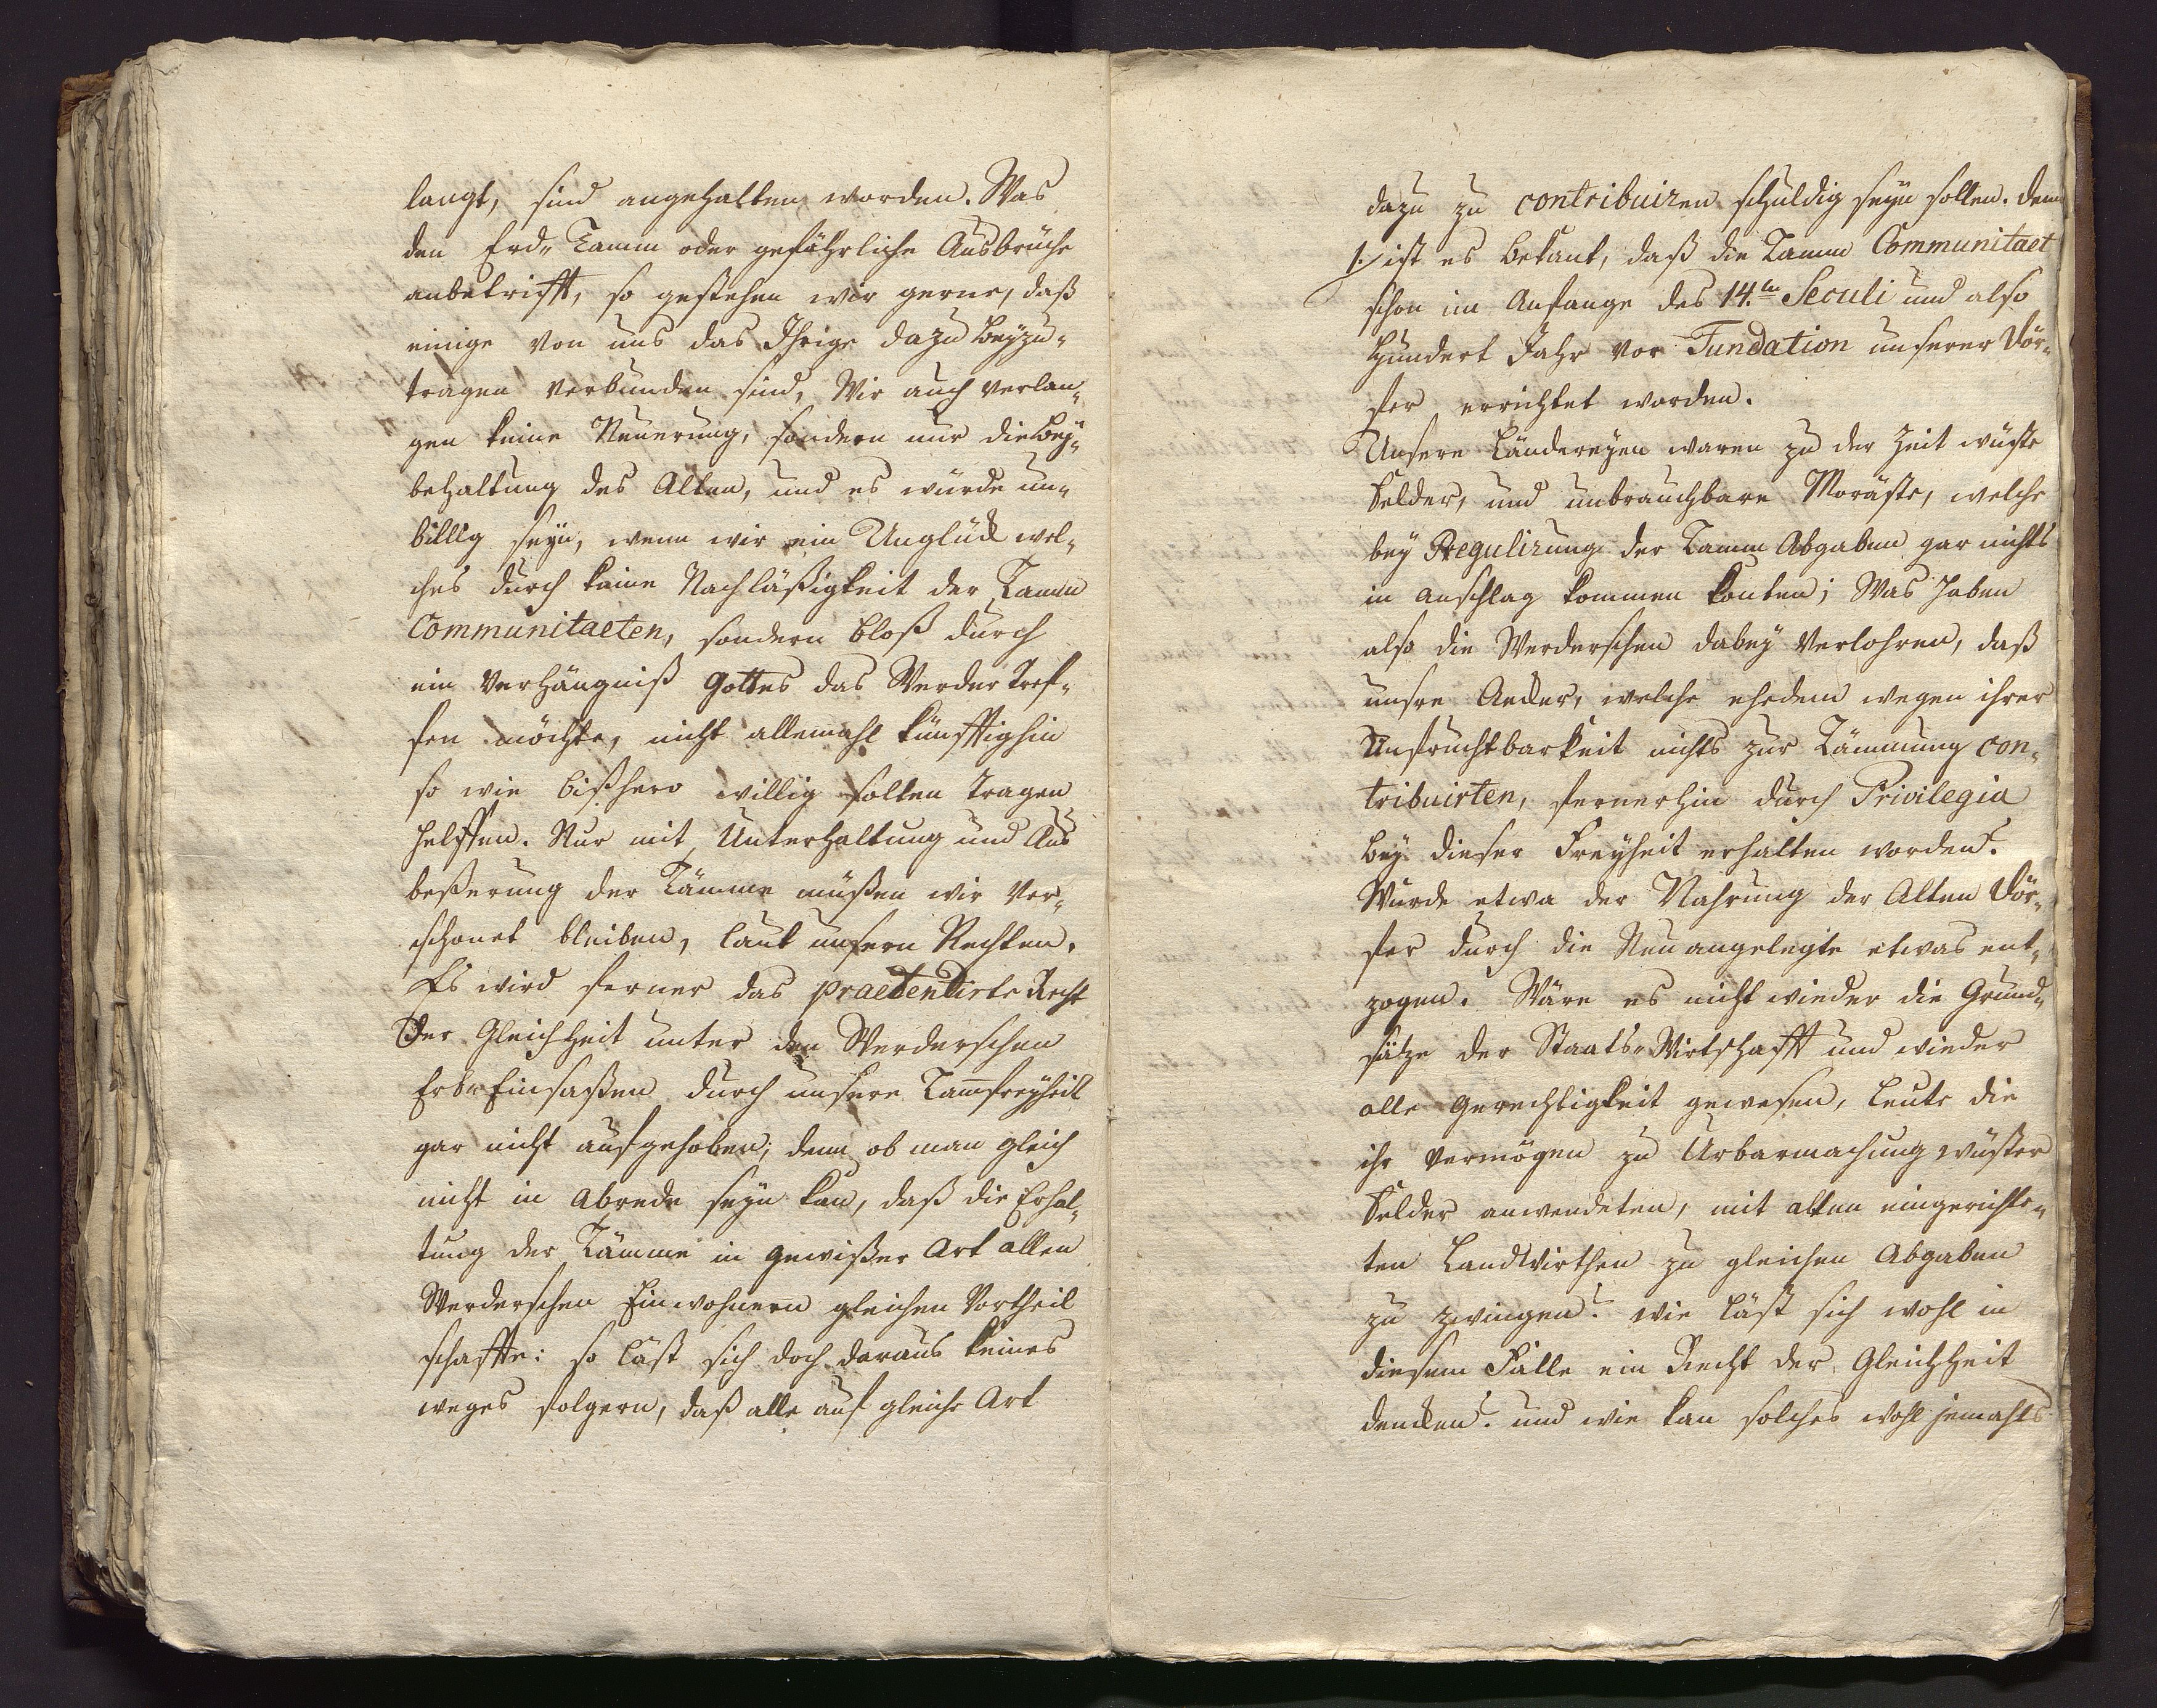 langt, sind angehalten worden. Was
den Erd- Tamm oder gefährliche Ausbrüche
anbetrifft, so gestehen wir gerne, daß
einige von uns das Ihrige dazu beyzu-
tragen verbunden sind, Wir auch verlan-
gen keine Neuerung, sondern nur die Bey-
behaltung des Alten, und es würde un-
billig seyn, wenn wir ein Unglück wel-
ches durch keine Nachläßigkeit der Tamm
Communitaeten, sondern bloß durch
ein Verhängniß Gottes das Werder tref-
fen möchte, nicht allemahl künfftighin
so wie bißhero willig solten tragen
helffen. Nur mit Unterhaltung und Aus
beßerung der Tämme müßen wir ver-
schonet bleiben, laut unsern Rechten.
Es wird ferner das praetendirte Recht
der Gleichheit unter den Werderschen
Erb-Einsaßen durch unsere Tammfreyheit
gar nicht aufgehoben; denn ob man gleich
nicht in Abrede seyn kan, daß die Erhal-
tung der Tämme in gewißer Art allen
Werderschen Einwohnern gleichen Vortheil
schaffte: so läst sich doch daraus keines
weges folgern, daß alle auf gleiche Art
dazu zu contribuiren schuldig seyn sollen. denn
1./ ist es bekant, daß die Tamm Communitaet
schon im Anfange des 14.ten Seculi und also
Hundert Jahr vor Fundation unserer Dör-
fer errichtet worden.
Unsere Ländereyen waren zu der Zeit wüste
Felder, und unbrauchbare Moräste, welche
bey Regulirung der Tamm Abgaben gar nichts
in Anschlag kommen konten; Was haben
also die Werderschen dabey verlohren, daß
unsre Aecker, welche ehedem wegen ihrer
Unfruchtbarkeit nichts zur Tämmung con-
tribuirten, fernerhin durch Privilegia
bey dieser Freyheit erhalten worden?
Wurde etwa der Nahrung der Alten Dör-
fer durch die Neu angelegte etwas ent-
zogen? Wäre es nicht wieder die Grund-
sätze der Staats-Wirtschafft und wieder
alle Gerechtigkeit gewesen, Leute die
ihr Vermögen zu Urbarmachung wüster
Felder anwendeten, mit alten eingerichte-
ten LandWirthen zu gleichen Abgaben
zu zwingen? wie läst sich wohl in
diesem Falle ein Recht der Gleichheit
dencken? und wie kan solches wohl jemahls